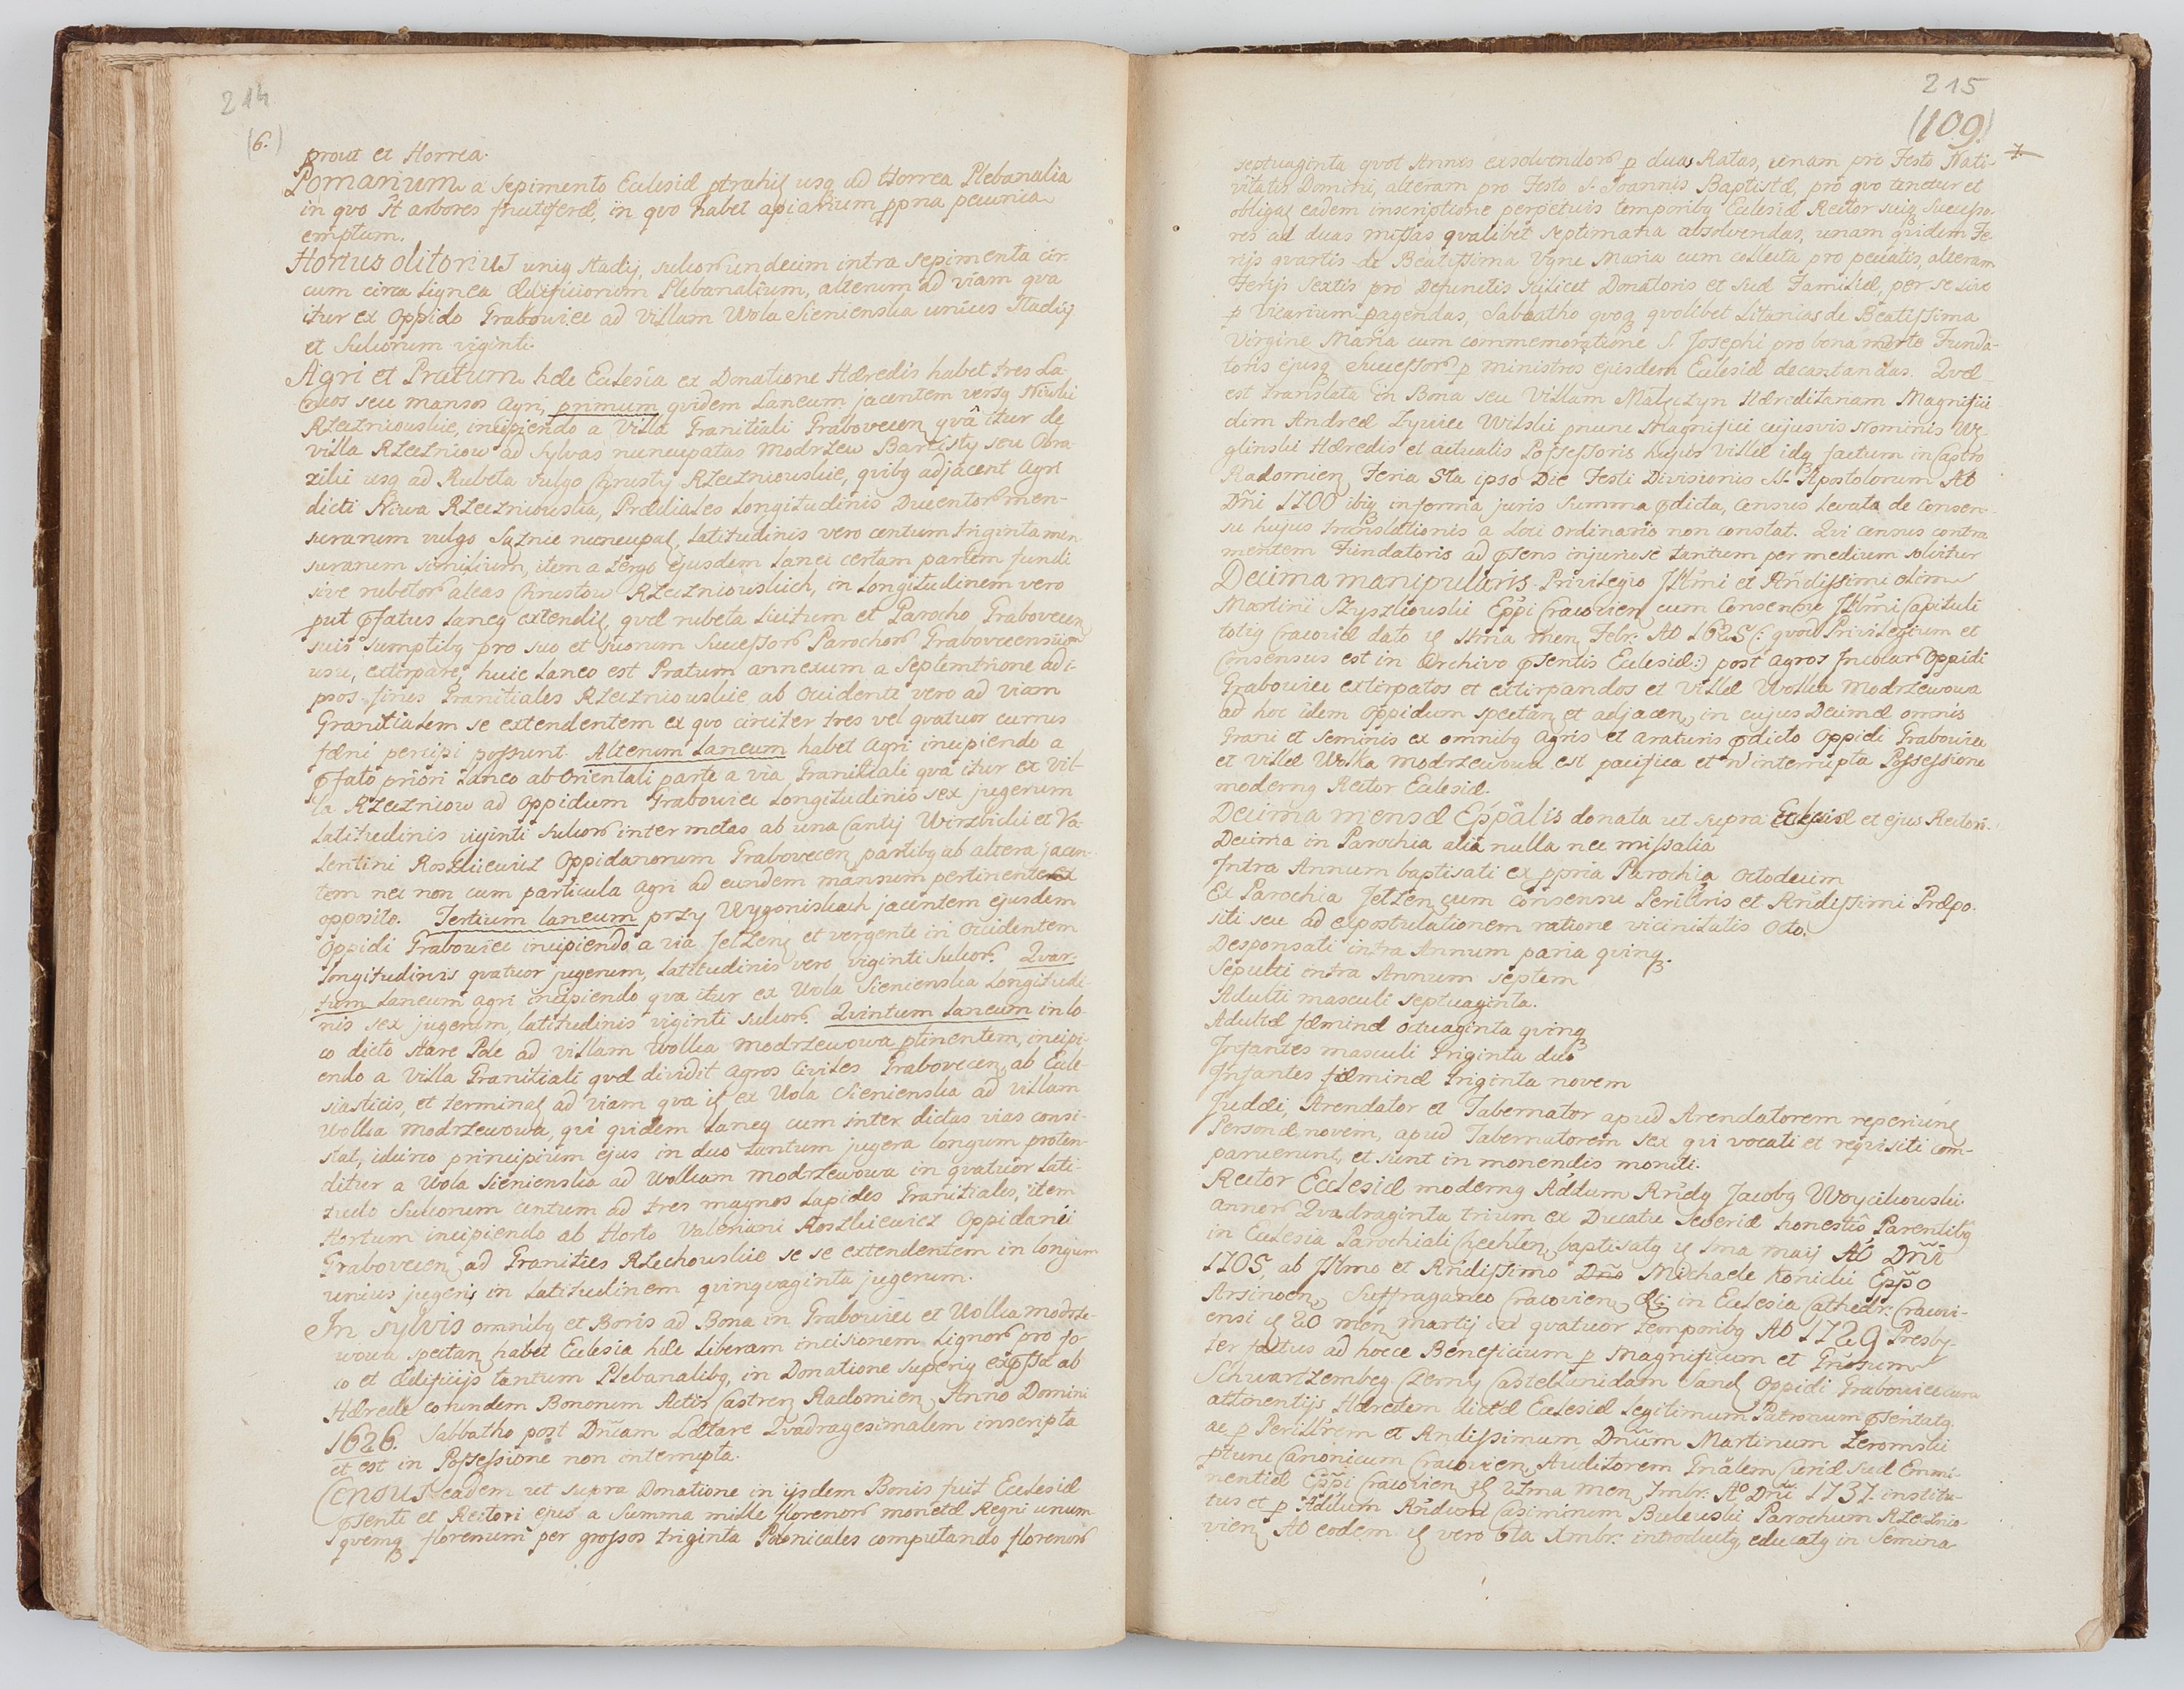 214
(6.)
prout et Horrea.
Pomarium a sepimento Ecclesiæ ptrahiɋ usq ad Horrea Plebanalia
in qvo st arbores fructiferæ, in qvo habet apiarium ppria pecunia
emptum.
Hortus olitorius uniq stadij, sulcor undecim intra sepimenta cir-
cum circa Lignea ædificiorum Plebanalium, alterum ad viam qva
itur ex Oppido Grabowiec ad Villam Wola Sienienska unius Stadij
et Sulcorum viginti.
Agri et Pratum hæc Ecclesia ex Donatione Hæredis habet tres La-
neos seu mansos Agri, primum qvidem Laneum jacentem versq Niwki
Rzeczniowskie, incipiendo a Villa Granitiali Grabovecen qvâ itur de
villa Rzeczniow ad Sylvas nuncupatas Modrzew Bartisty seu Obra-
ziki usq ad Rubeta vulgo Chrusty Rzeczniowskie, qvibq adjacent Agri
dicti Niwa Rzeczniowska, Prædiales Longitudinis Ducentor men-
surarum vulgo Sążnie nuncupaɋ, Latitudinis vero centum triginta men-
surarum similium, item a tergo ejusdem Lanei certam partem fundi
sive rubetor aleas Chrustow Rzeczniowskich, in Longitudinem vero
put pfatus Laneq extendiɋ, qvæ rubeta licitum et Parocho Grabovecen
suis sumptibq pro suo et suorum Successor Parochor Grabovecensium
usu, extirpare, huic Laneo est Pratum annexum a Septemtrione ad i-
psos fines Granitiales Rzeczniowskie ab Occidente vero ad viam
Granitialem se extendentem ex qvo circiter tres vel qvatuor currus
fæni percipi possunt. Alterum Laneum habet Agri incipiendo a
pfato priori Laneo ab Orientali parte a via Granitiali qva itur ex Vil-
la Rzeczniow ad Oppidum Grabowiec Longitudinis sex jugerum
Latitudinis viginti sulcor inter metas ab una Cantij Wirzbicki et Va-
lentini Roszkiewicz Oppidanorum Grabovecen partibq ab altera jacen-
tem nec non cum particula Agri ad eundem mansum pertinente ex
opposito. Tertium Laneum przy Wygoniskach jacentem ejusdem
Oppidi Grabowiec incipiendo a via Jelzenɋ et vergente in Occidentem
Longitudinis qvatuor jugerum, Latitudinis vero viginti Sulcor. Qvar-
tum Laneum agri incipiendo qva itur ex Wola Sienienska Longitudi-
nis sex jugerum, Latitudinis viginti sulcor. Qvintum Laneum in lo-
co dicto stare Pole ad Villam Wolka Modrzewowa ptinentem, incipi-
endo a Villa Granitiali qvæ dividit Agros Civiles Grabovecen, ab Eccle-
siasticis, et terminaɋ ad viam qva iɋ ex Wola Sienienska ad villam
Wolka Modrzewowa, qvi qvidem Laneq cum inter dictas vias consi-
stat, idcirco principium ejus in duo tantum jugera longum proten-
ditur a Wola Sienienska ad Wolkam Modrzewowa in qvatuor Lati-
tudo Sulcorum centum ad tres magnos Lapides Granitiales, item
Hortum incipiendo ab Horto Valeriani Roszkiewicz Oppidani
Grabovecen ad Granities Rzechowskie se se extendentem in longum
unius jugeris in Latitudinem qvinqvaginta jugerum.
In sylvis omnibq et Boris ad Bona in Grabowiec et Wolka modrze-
wowa spectan habet Ecclesia hæc Liberam incisionem Lignor pro fo-
co et ædificijs tantum Plebanalibq, in Donatione superiq expssa ab
Hærede eorundem Bonorum Actis Castren Radomien Anno Domini
1626. Sabbatho post Dñcam Lætare Qvadragesimalem inscripta
et est in Possessione non interrupta.
Census eadem ut supra Donatione in ijsdem Bonis fuit Ecclesiæ
psenti et Rectori ejus a Summa mille florenor monetæ Regni unum-
qvemq florenum per grossos triginta Polonicales computando florenor
215
(109.)
septuaginta qvot Annis exsolvendor p duas Ratas, unam pro Festo Nati-
vitatis Domini, alteram pro Festo S. Joannis Baptistæ, pro qvo tenetur et
obligaɋ eadem inscriptione perpetuis temporibq Ecclesiæ Rector suiq Successo-
res ad duas missas qvalibet septimana absolvendas, unam qvidem Fe-
rijs qvartis de Beatissima Vgne Maria cum collecta pro peccatis, alteram
Ferijs Sextis pro Defunctis scilicet Donatoris et suæ Familiæ, per se sive
p Vicarium pagendas, Sabbatho qvoq qvolibet Litanias de Beatissima
Virgine Maria cum commemoratione S. Josephi pro bona morte Funda-
toris ejusq Successor p ministros ejusdem Ecclesiæ decantandas. Qvæ
est translata in Bona seu Villam Małyczyn Hæreditariam Magnifici
olim Andreæ Zywiec Wilski pnunc Magnifici cujusvis Nominis Wę-
glinski Hæredis et actualis Possessoris hujus Villæ idq factum in Castro
Radomien Feria 5ta ipso Die Festi Divisionis SS. Apostolorum Ao
Dñi 1700 ibiq in forma juris Summa pdicta, Census Levata de Consen-
su hujus Translationis a Loci Ordinario non constat. Qvi census contra
mentem Fundatoris ad psens injuriose tantum per medium solvitur
Decima manipularis Privilegio Illmi et Rñdissimi olim
Martini Szyszkowski Eppi Cracovien cum Consensu Illmi Capituli
totiq Cracoviæ dato iɋ 11ma Men Febr: Ao 1625 (: qvod Privilegium et
Consensus est in Archivo psentis Ecclesiæ:) post Agros Incolar Oppidi
Grabowiec extirpatos et extirpandos et Villæ Wolka Modrzewowa
ad hoc idem Oppidum spectan et adjacen, in cujus Decimæ omnis
Grani et Seminis ex omnibq Agris et Araturis pdicto Oppidi Grabowiec
et villæ Wolka Modrzewowa est pacifica et ñ interrupta Possessione
modernq Rector Ecclesiæ.
Decima mensæ Eppalis donata ut supra Ecclesiæ et ejus Rectori.
Decima in Parochia alia nulla nec missalia
Intra Annum baptisati ex ppria Parochia Octodecim
Ex Parochia Jelzen cum Consensu Perillris et Rñdissimi Præpo-
siti seu ad expostulationem ratione vicinitatis Octo.
Desponsati intra Annum paria qvinq.
Sepulti intra Annum septem
Adulti masculi septuaginta.
Adultæ fæminæ octuaginta qvinq
Infantes masculi triginta duo
Infantes fæminæ triginta novem
Judæi, Arendator et Tabernator apud Arendatorem reperiunɋ
Personæ novem, apud Tabernatorem sex qvi vocati et reqvisiti com-
paruerunt, et sunt in monendis moniti.
Rector Ecclesiæ modernq Addum Rñdq Jacobq Woycikowski
annor Qvadraginta trium ex Ducatu Severiæ honestis Parentibq
in Ecclesia Parochiali Chechlen, baptisatq iɋ 1ma Maij Ao Dñi
1705, ab Illmo et Rñdissimo Dño Michaele Konicki Eppo
Arsinoen, Suffraganeo Cracovien &c: in Ecclesia Cathedr: Cracovi-
ensi iɋ 20 men Martij ex qvatuor temporibq Ao 1729 Presby-
ter factus ad hocce Beneficium p Magnificum et Gñosum
Schwartzembeg Czerny Castellanidam Sandɋ Oppidi Grabowiec cum
attinentijs Hæredem dictæ Ecclesiæ Legitimum Patronum psentatq.
ac p Perillrem et Rñdissimum Dñum Martinum Zeromski
ptunc Canonicum Cracovien, Auditorem Gñalem Curiæ Suæ Emmi-
nentiæ Eppi Cracovien iɋ Men 7mbr: Ao Dñi 1737. institu-
tus et p Addum Rñdum Casimirum Bukowski Parochum Rzecznio-
vien, Ao eodem iɋ vero 6ta Xmbr: introductq, educatq in Semina-